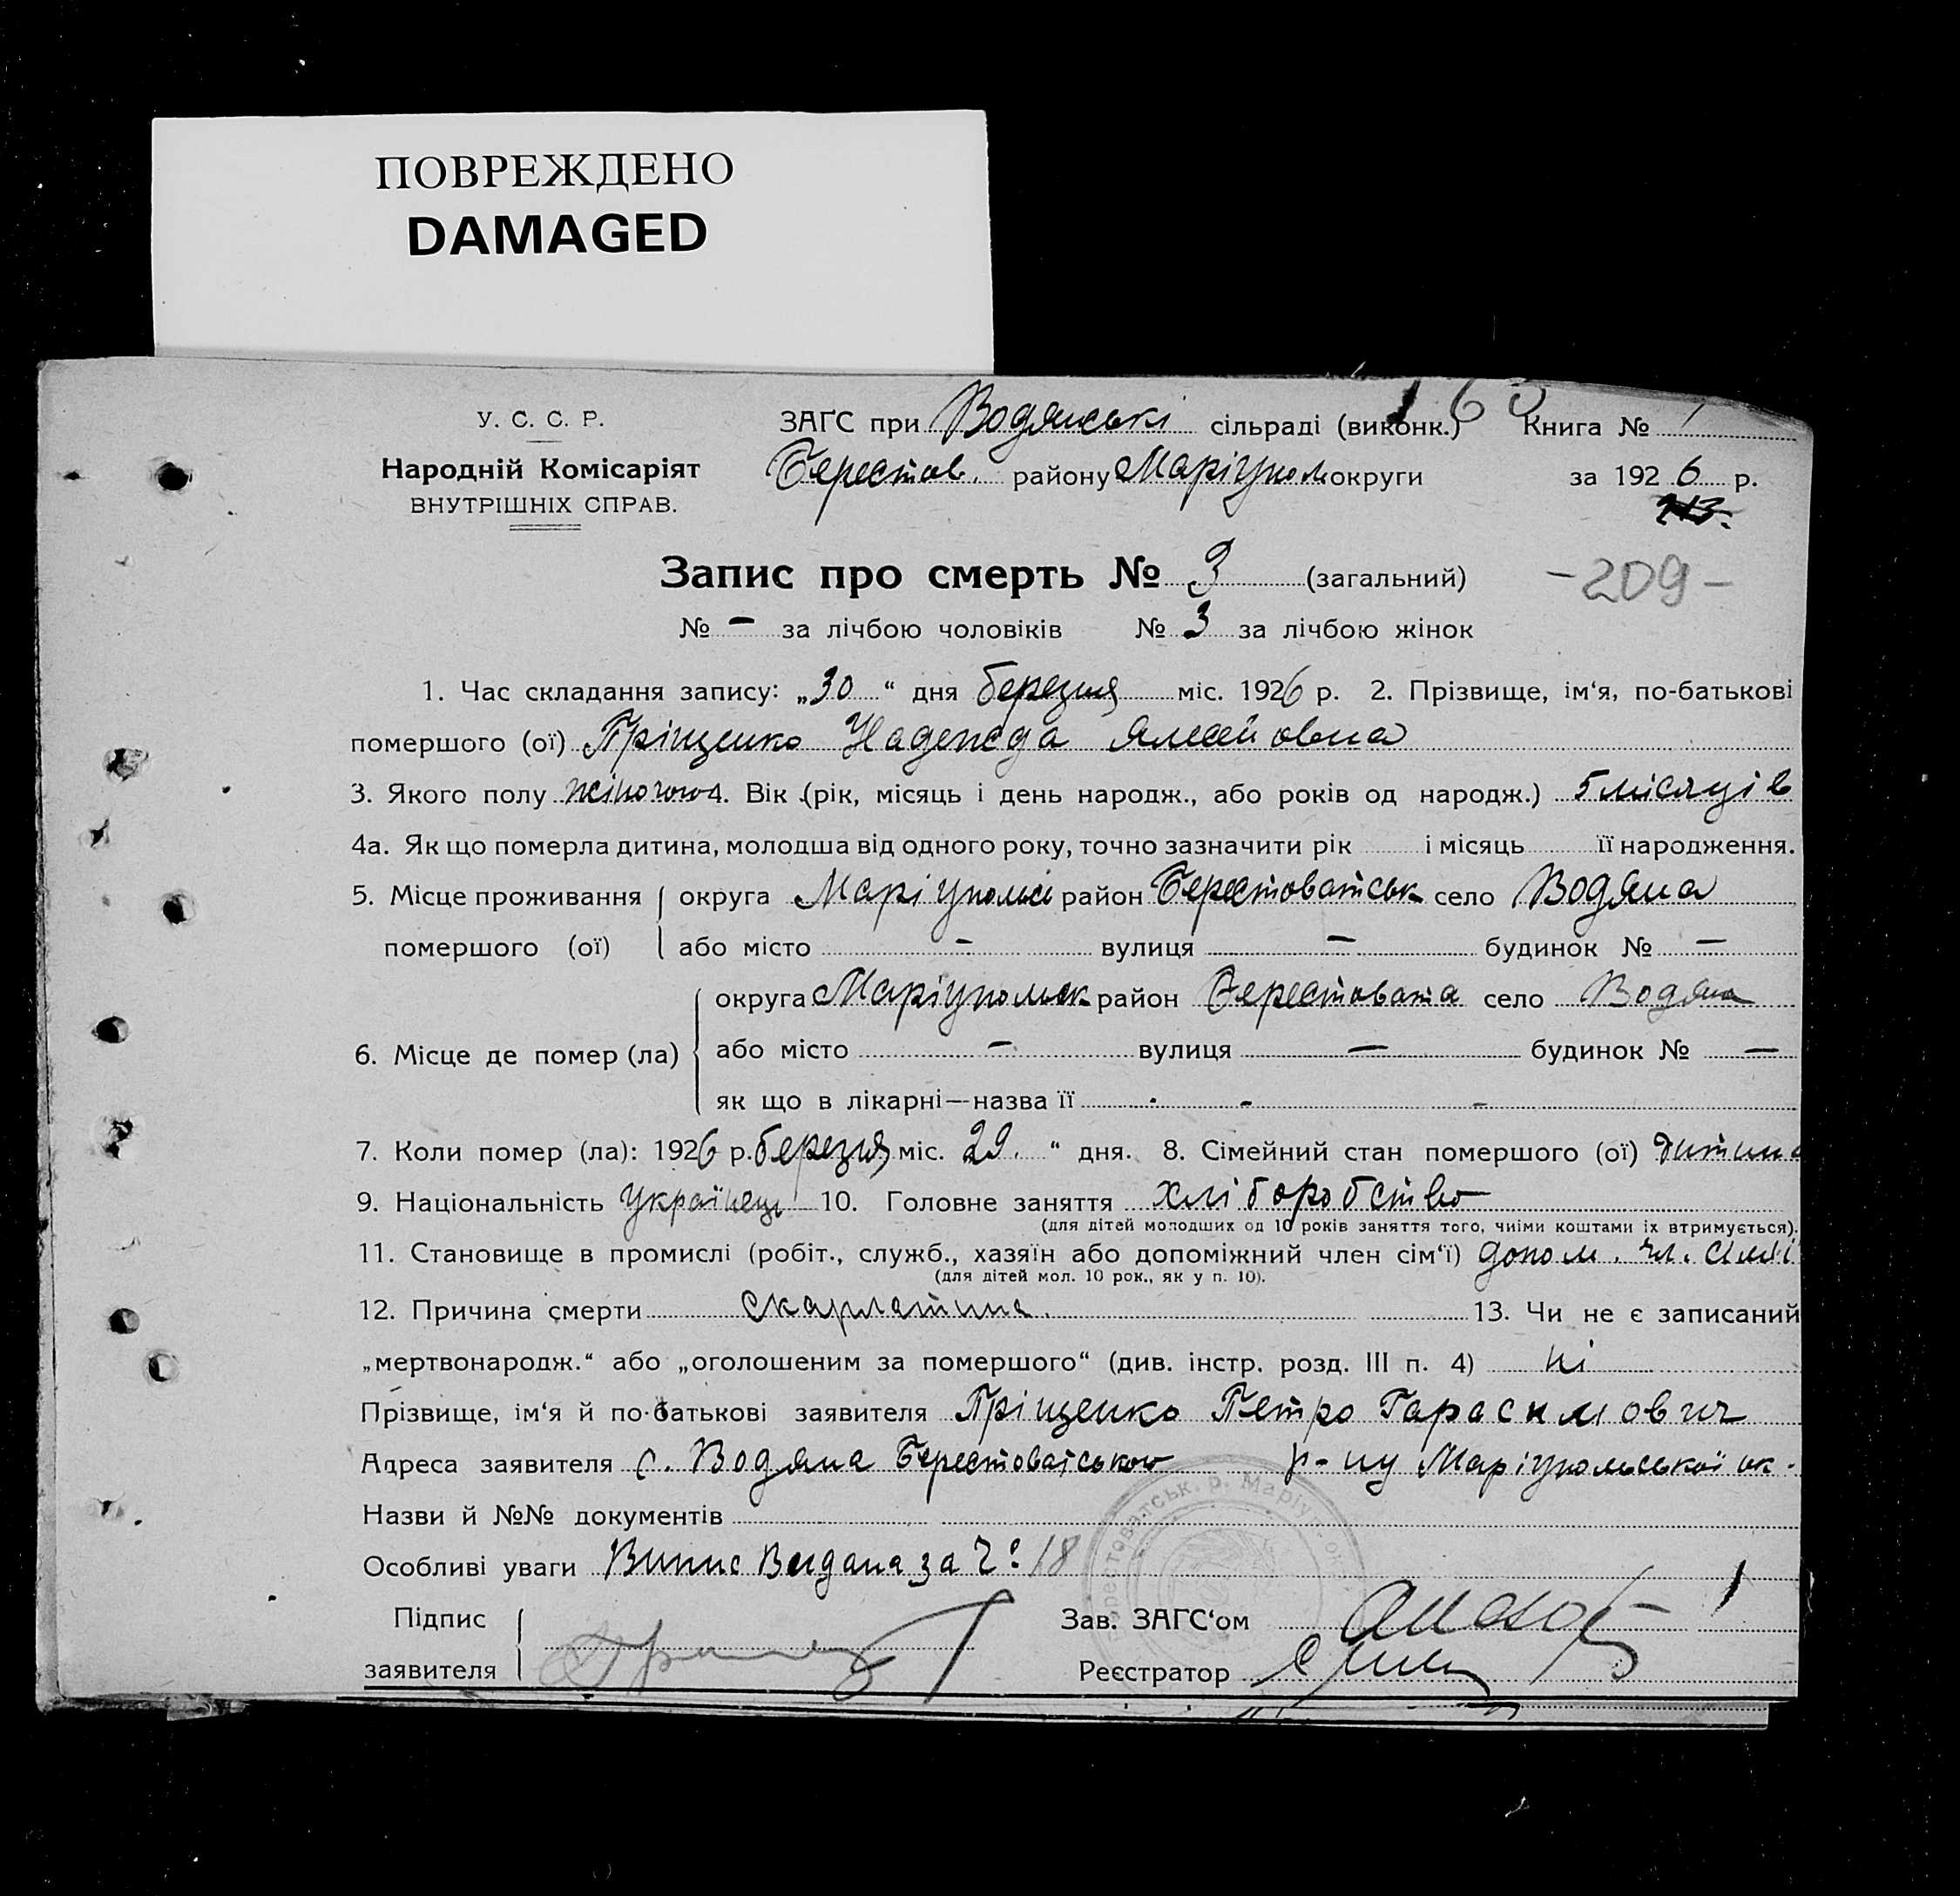 ПОВРЕЖДЕНО
DAMAGED
У. С. С. Р.
Народній Комісаріят
ВНУТРІШНІХ СПРАВ.
ЗАГС при Водянські сільраді (виконк.) Книга № 1
Берестов. району Маріупол округи за 1926 р.
Запис про смерть № 3 (загальний)
-209-
№ – за лічбою чоловіків № 3 за лічбою жінок
1. Час складання запису: „30“ дня березня міс. 1926 р. 2. Прізвище, ім‘я, по-батькові
помершого (ої) Гріщенко Надежда
3. Якого полу жіночого 4. Вік (рік, місяць і день народж., або років од народж.) 5 місяців
4а. Як що померла дитина, молодша від одного року, точно зазначити рік і місяць її народження.
5. Місце проживання округа Маріупольсь район Берестоватськ село Водяна
помершого (ої) або місто – вулиця – будинок № –
округа Маріупольск район Берестовата село Водяна
6. Місце де помер (ла) або місто – вулиця – будинок № –
як що в лікарні—назва її - -
7. Коли помер (ла): 1926 р. березня міс. 29. “ дня. 8. Сімейний стан помершого (ої) дитина
9. Національність українець 10. Головне заняття хліборобство
(для дітей молодших од 10 років заняття того, чиїми коштами їх втримується).
11. Становище в промислі (робіт., служб., хазяїн або допоміжний член сім‘ї) допом. чл. сімї
(для дітей мол. 10 рок., як у п. 10).
12. Причина смерти скарлатина. 13. Чи не є записаний
„мертвонародж.“ або „оголошеним за помершого“ (див. інстр. розд. III п. 4) ні
Прізвище, ім‘я й по-батькові заявителя Гріщенко Петро Гарасимович
Адреса заявителя с. Водяна Берестоватського р-ну Маріупольської ок.
Назви й №№ документів
Особливі уваги Випис Видана за Ч: 18
Підпис
заявителя
Зав. ЗАГС‘ом
Реєстратор